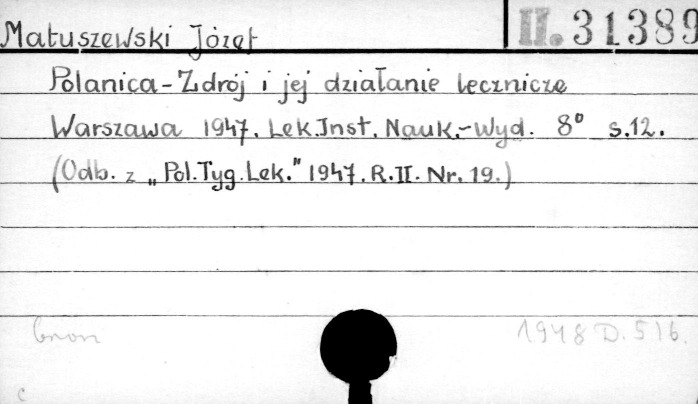 Matuszewski Józef II. 31389
Polanica-Zdrój i jej działanie lecznicze
Warszawa 1947. Lek.Inst. Nauk.-Wyd. 8° s.12.
(Odb. z „Pol.Tyg.Lek." 1947. R.II. Nr. 19.)
1948 D. 516.
c